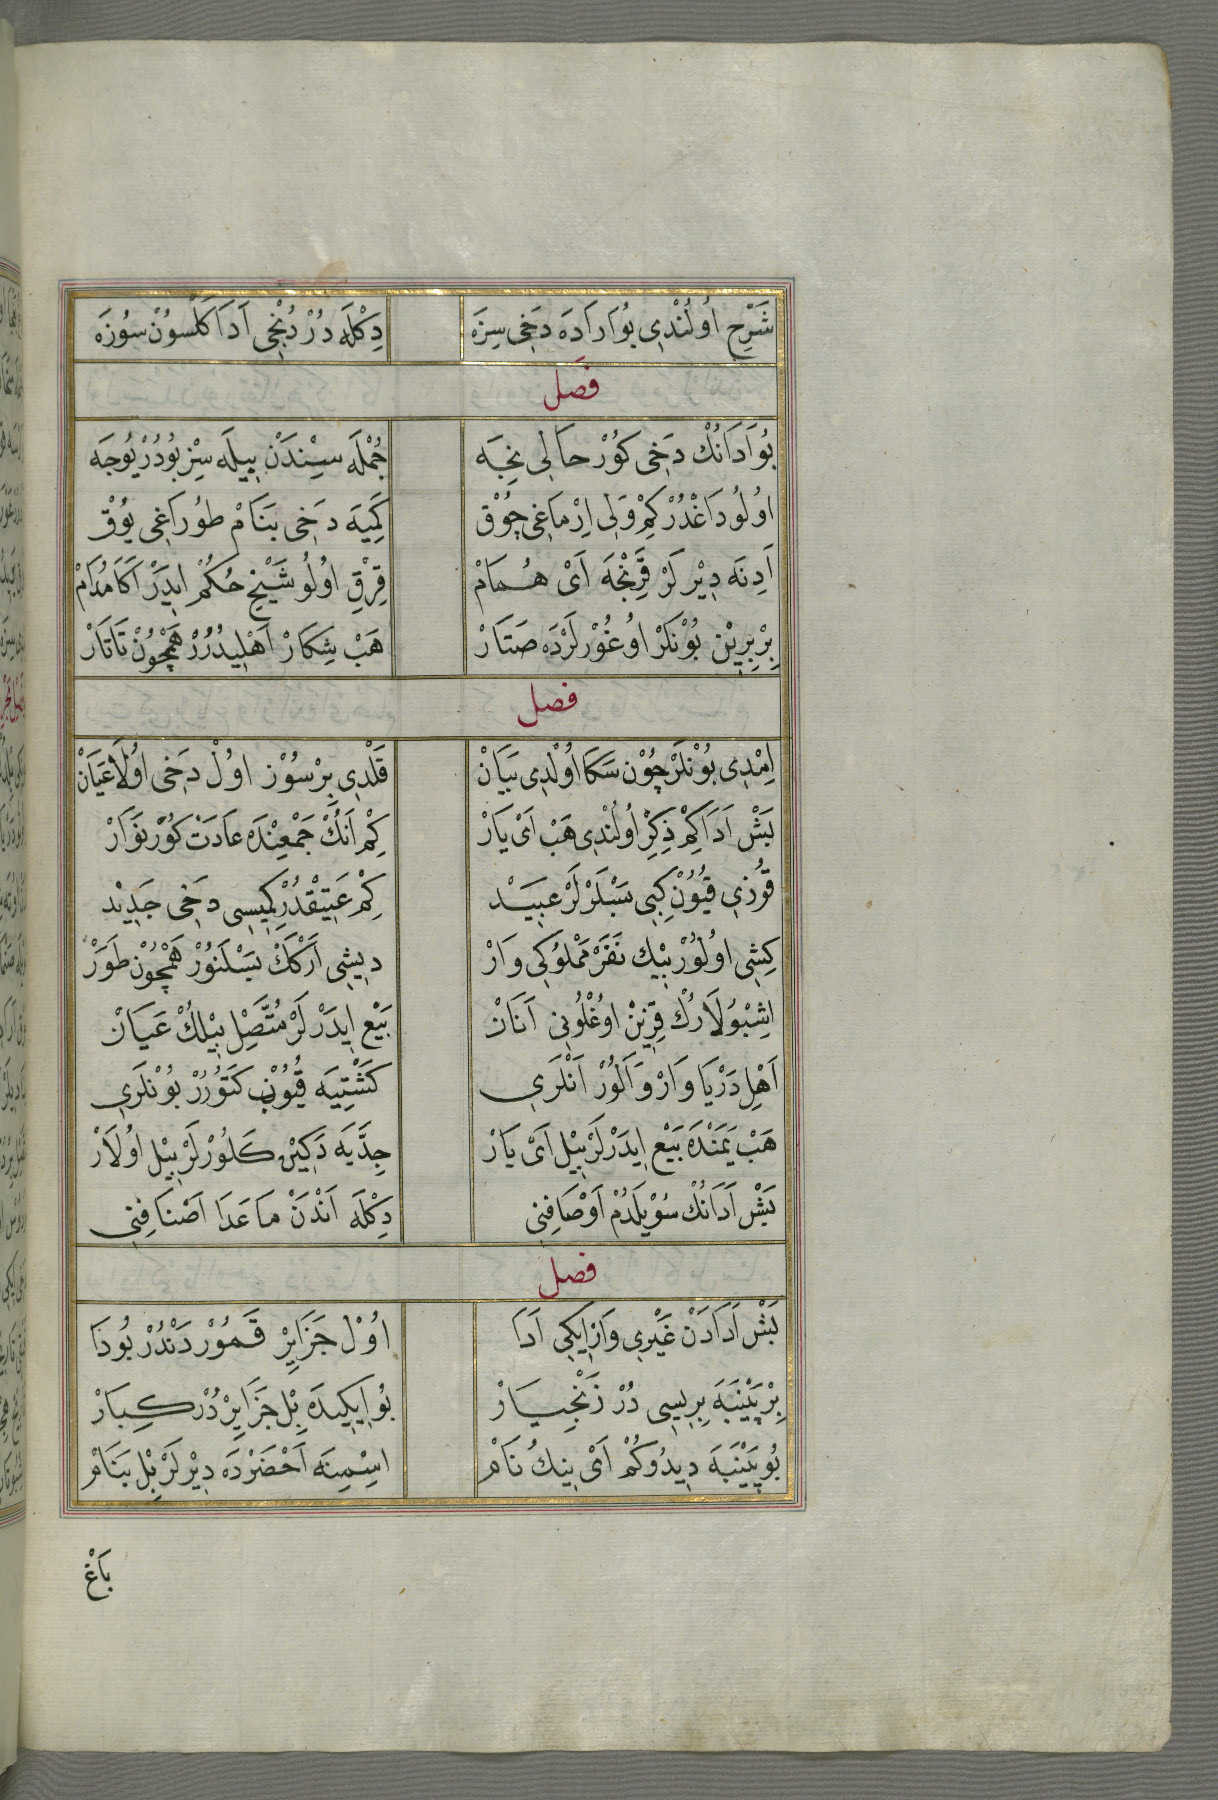 شَرْحِ اُولُنْدِي بُوَارَادَه دَخِي سِزَه دِكْلَه دُرْدُنْجِي اَدَا كَلْسُوْنْ سُوْزَه
فَصل
بُو اَدَانُكْ دَخِي كُوْر حَالِي نِجَه جُمْلَه سِنْدَنْ بِيلَه سِزْ بُودُرْ يُوجَه
اوُلُو دَاغْدُرْ كِمْ وَلِي اِرْمَاغِي چُوْقْ كَمِيَه دَخِي بَنَامْ طُورَاغِي يُوْقْ
اَدِنَه دِيْرلَرْ قَرِنْجَه اَىْ هُمَامْ قِرْقِ اوُلُو شَيْخِ حُكُمْ ايِدَرْ اَكَا مُدَامْ
بِرْبِرِيْنْ بُوْنلَرْ اوُغُوْرلَرْدَه صَتَارْ هَبْ شِكَارْ اَهْلِيدُرُرْ هَمْچُوْنْ تَاتَارْ
فصل
اِمْدِي بُوْنلَرْ چُوْنْ سَكَا اُوْلْدِي بَيَانْ قَلْدِي بِرْ سُوْز اوُلْ دَخِي اوُلاَ عَيَانْ
بَشْ اَدَا كِمْ ذِكْرِ اُولُنْدِي هَبْ اَىْ يَارْ كِمْ اَنُكْ جَمْعِنْدَه عَادَتْ كُوْر نَوَارْ
قُوزِي قُيُوْنْ كِبِي بَسْلَرْلَرْ عَبِيَدْ كِمْ عَتِيْقْدُرْ كِمِيسِي دَخِي جَدِيْد
كِشِي اوُلُوْرْ بِيْك نَفَرْ مَمْلُوكِي وَارْ دِيشِي اَرْكَكْ بَسْلَنُوْرْ هَمْچُوْن طَوَرْ
اِشْبُولَارُكْ قِزِينْ اوُغْلُونِي آنَانْ بَيْع اِيدَرْلَرْ مُتَّصِلْ بِيْلِكْ عَيَانْ
اَهْلِ دَرْيَا وَارْ وَ اَلُوْر اَنْلَرِي كَشْتِيَه قُيُوْبْ كَتُوْرُرْ بُوْنْلَرِي
هَبْ يَمَنْدَه بَيْع اِيدَرْلَرْ بِيْل اَىْ يَارْ جِدَّيَه دَكِيْن كَلُوْرْلَرْ بِيْل اوُلَارْ
بَشْ اَدَانُكْ سُوْيلَدُمْ اَوْصَافِنِي دِكْلَه اَنْدَنْ مَاعَدَا اَصْنَافِنِي
فصل
بَشْ اَدَادَنْ غَيْرِي وَارْ اِيكِي اَدَا اوُلْ جَزَايِرْ قَمُوْردَنْدُرْ بُودَا
بِرْ پَيْنَبَه بِرِيسِي دُرْ زَنْجِبَارْ بُو اِيكِيدَه بِلْ جَزَايِرْدُرْ كِبَارْ
بُو پَيْنَبَه دِيدُوكُمْ اَىْ نِيكُ نَامْ اسِْمِنَه اَحْضَرْدَه دِيْرلَرْ بِلْ بَنَامْ
بَاغْ